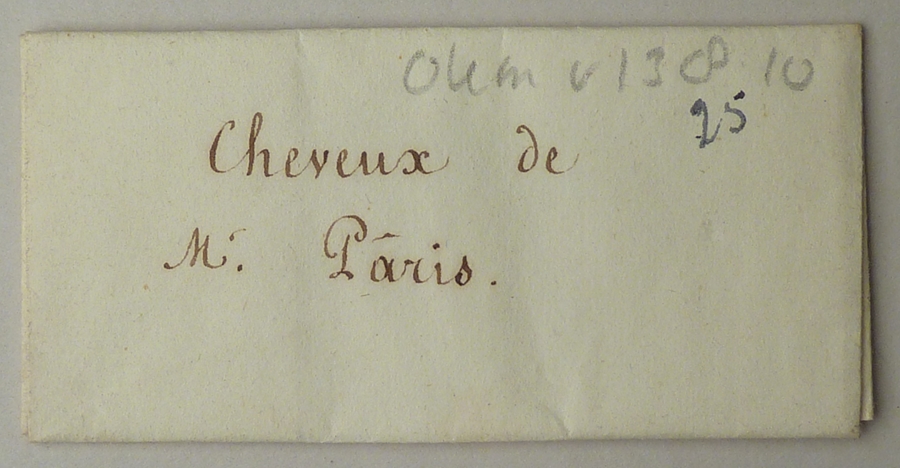 v 138.10
25
Cheveux de
Mr. Pâris.